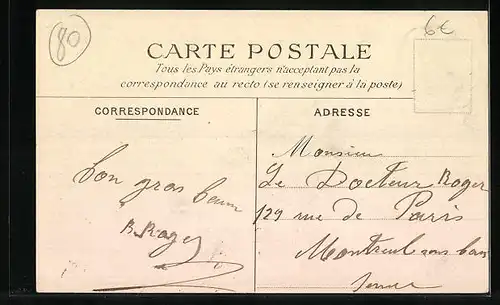 80
6€
CARTE POSTALE
Tous les Pays étrangers n'acceptant pas la
correspondance au recto (se renseigner à la poste)
CORRESPONDANCE
bon gros
B. Roger
ADRESSE
Monsieur
Le Docteur Roger
129 rue de Paris
Montreuil sous bois
Seine